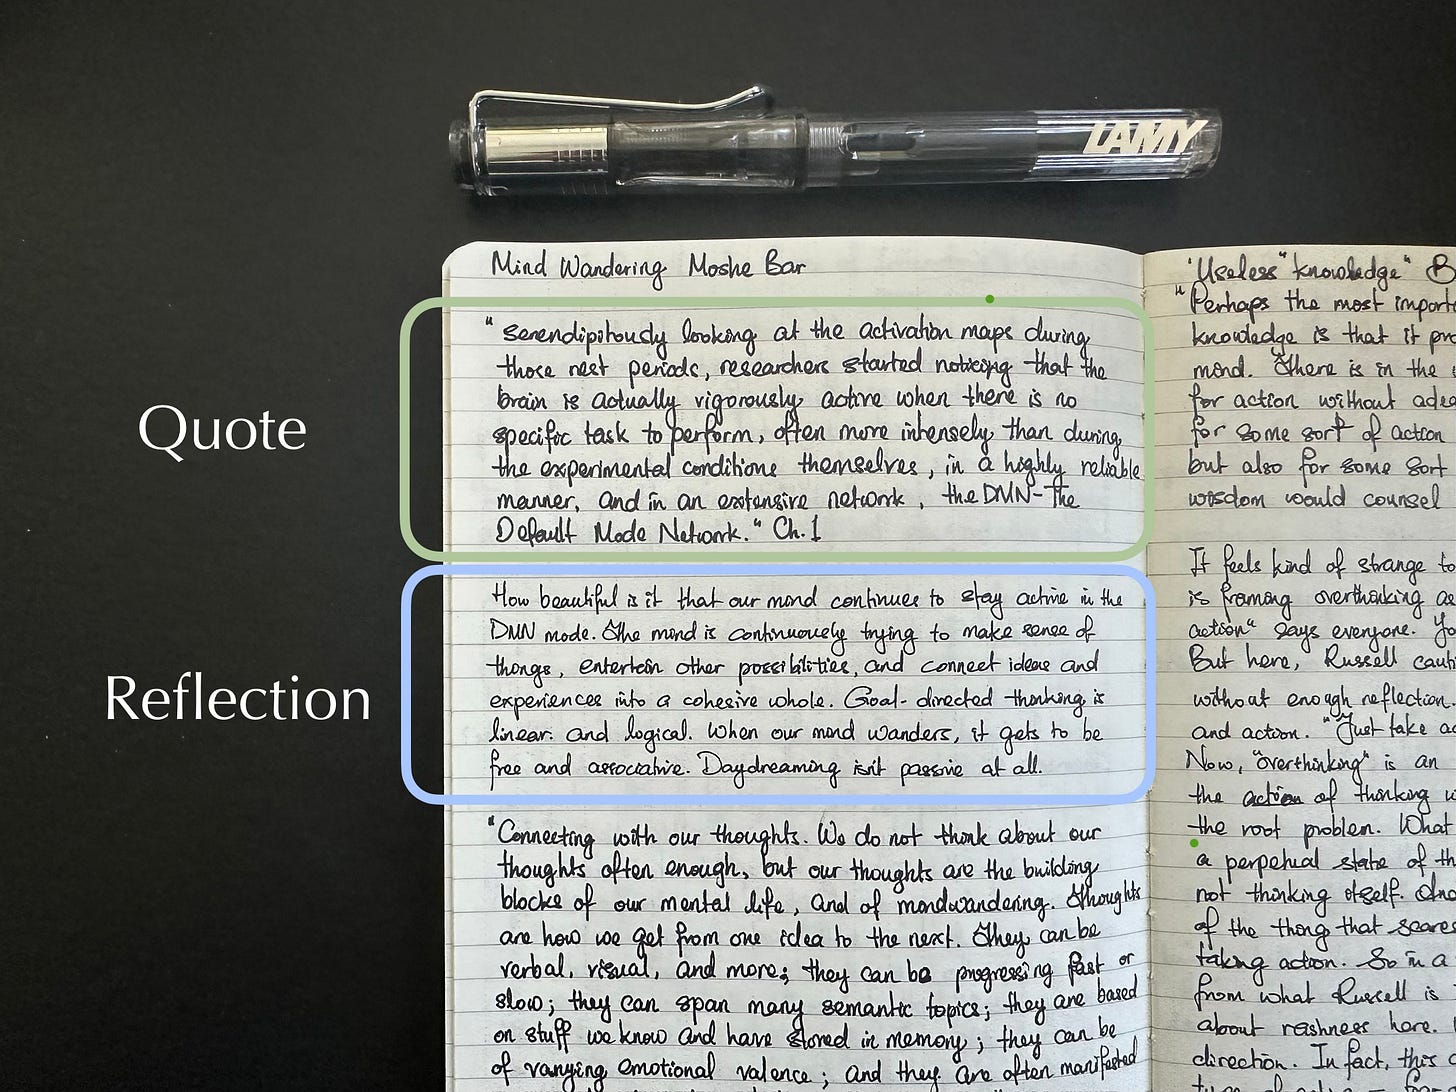 LAMY
Mind Wandering Moshe Bar
Quote
"serendipitously looking at the activation maps during
those rest periods, researchers started noticing that the
brain is actually vigorously active when there is no
specific task to perform, often more intensely than during
the experimental conditions themselves, in a highly reliable
manner, and in an extensive network, the DMN-The
Default Mode Network." Ch.1
Reflection
How beautiful is it that our mind continues to stay active in the
DMN mode. The mind is continuously trying to make sense of
things, entertain other possibilities, and connect ideas and
experiences into a cohesive whole. Goal-directed thinking is
linear and logical. When our mind wanders, it gets to be
free and associative. Daydreaming isn't passive at all.
"Connecting with our thoughts. We do not think about our
thoughts often enough, but our thoughts are the building
blocks of our mental life, and of mindwandering. Thoughts
are how we get from one idea to the next. They can be
verbal, visual, and more; they can be progressing fast or
slow; they can span many semantic topics; they are based
on stuff we know and have stored in memory; they can be
of varying emotional valence; and they are often manifested
"Useless" knowledge" B
"Perhaps the most import
knowledge is that it pro
mind. There is in the
for action without ade
for some sort of action
but also for some sort
wisdom would counsel
It feels kind of strange to
is framing overthinking as
action" says everyone. Yo
But here, Russell cauti
without enough reflection.
and action. "Just take ac
Now, "overthinking" is an
the action of thinking
the root problem. What
a perpetual state of th
not thinking itself. 
of the thing that scares
taking action. So in a
from what Russell is
about rashness here.
direction. In fact, this